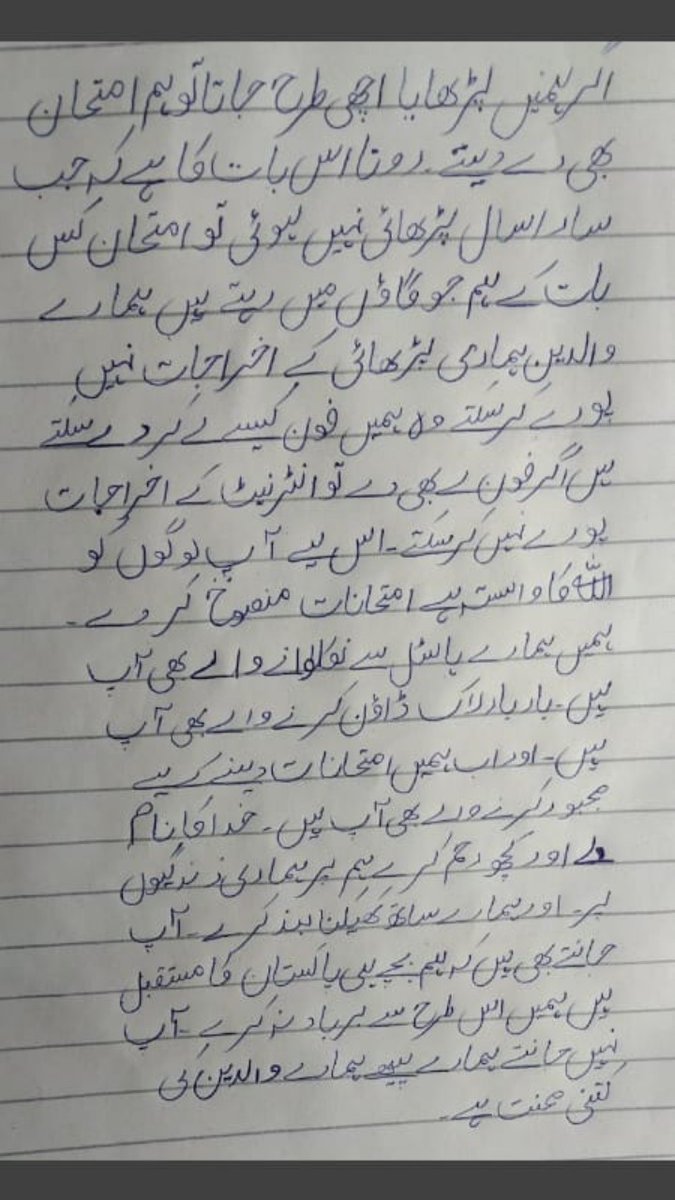 اگر ہمیں پڑھایا اچھی طرح جاتا تو ہم امتحان
بھی دے دیتے۔ رونا اس بات کا ہے کہ جب
سارا سال پڑھائی نہیں ہوئی تو امتحان کس
بات کے ہم جو گاؤں میں رہتے ہیں ہمارے
والدین ہماری پڑھائی کے اخراجات نہیں
پورے کر سکتے وہ ہمیں فون کیسے لے کر دے سکتے
ہیں اگر فون لے بھی دے تو انٹرنیٹ کے اخراجات
پورے نہیں کر سکتے۔ اس لیے آپ لوگوں کو
اللہ کا واسته ہے امتحانات منصوخ کر دے۔
ہمیں ہمارے ہاسٹل سے نکلوانے والے بھی آپ
ہیں۔ بار بار لاک ڈاؤن کرنے والے بھی آپ
ہیں۔ اور اب ہمیں امتحانات دینے کے لیے
مجبور کرنے والے بھی آپ ہیں۔ خدا کا نام
لے اور کچھ رحم کرے ہم پر ہماری زندگیوں
پر۔ اور ہمارے ساتھ کھیلنا بند کرے۔ آپ
جانتے بھی ہیں کہ ہم بچے ہی پاکستان کا مستقبل
ہیں ہمیں اس طرح سے برباد نہ کرے۔ آپ
نہیں جانتے ہمارے پیچھے ہمارے والدین کی
کتنی محنت ہے۔